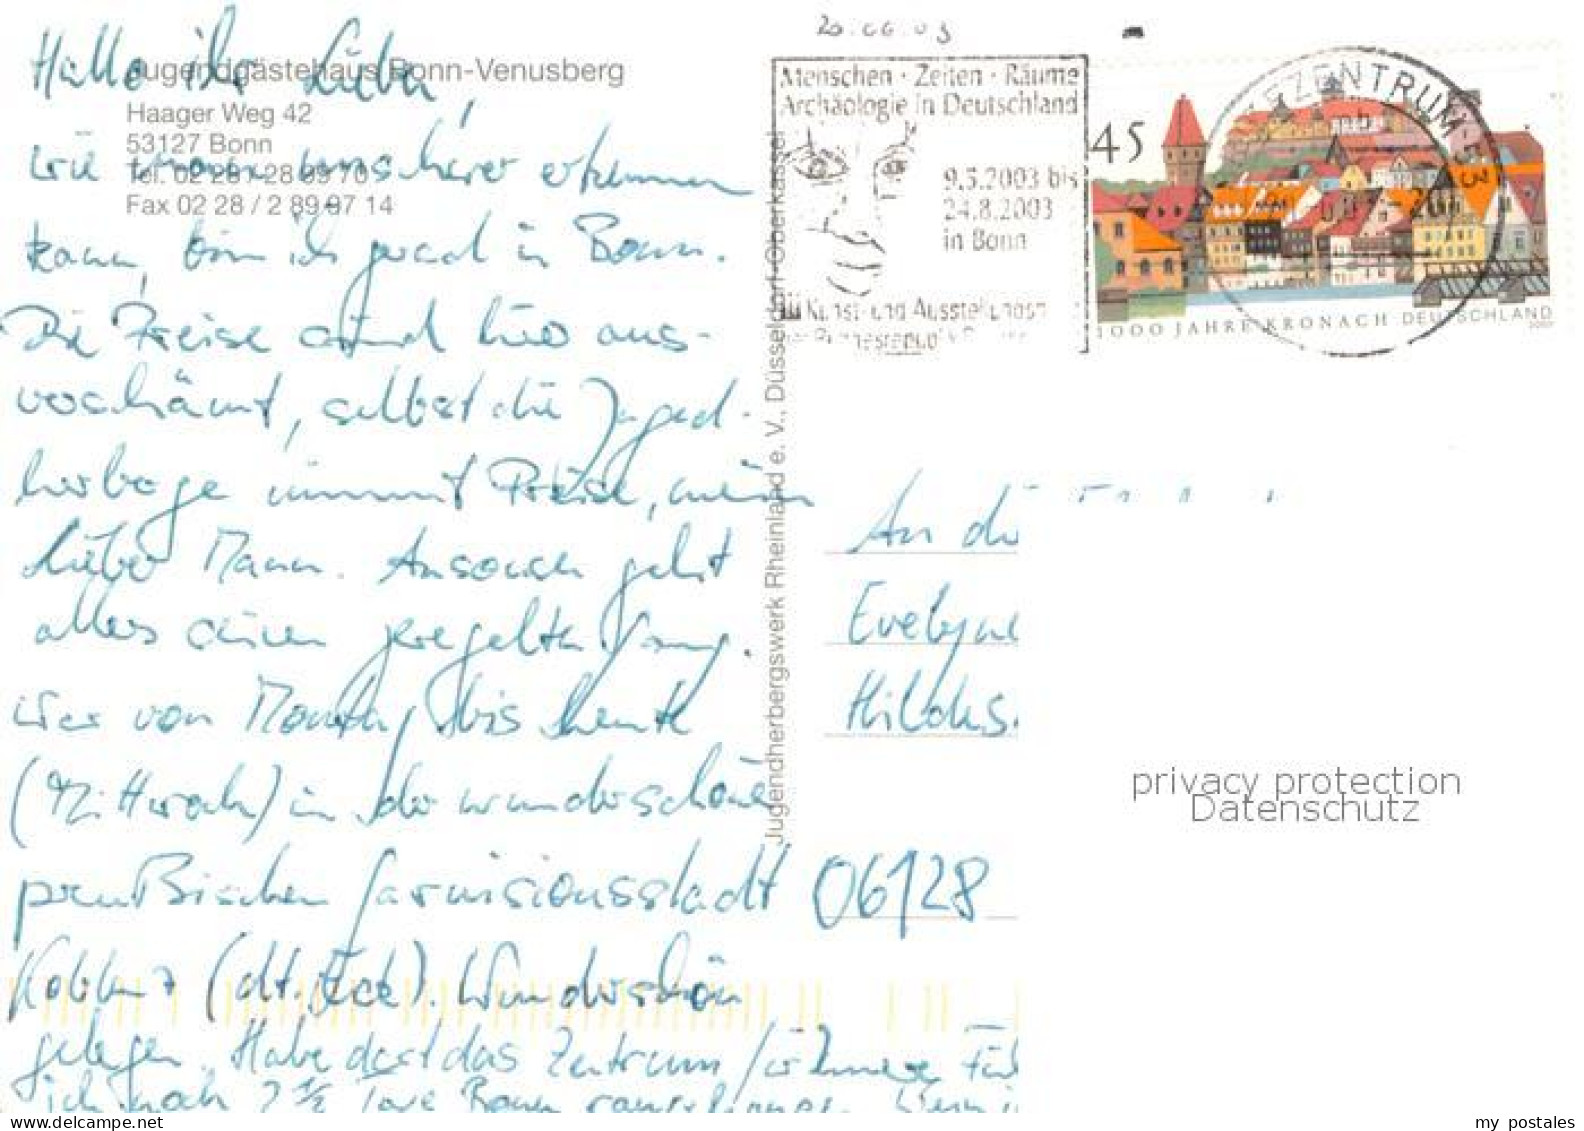 Hallo ihr Lieben,
Jugendgästehaus Bonn-Venusberg
Haager Weg 42
53127 Bonn
Tel. 02 28 / 28 99 70
Fax 02 28 / 2 89 97 14
wie man unschwer erkennen
kann, bin ich gerad in Bonn.
Die Preise sind hier aus-
verschämt, selbst die Jugend-
herberge nimmt Preise, mein
lieber Mann. Ansonsten geht
alles seinen geregelten Gang.
War von Montag bis heute
(Mittwoch) in der wunderschönen
preußischen Garnisionsstadt
Koblenz (dt. Eck). Wunderschön
gelegen. Habe dort das Zentrum für Innere
ich noch 2 1/2 Tage Bonn
Jugendherbergswerk Rheinland e. V., Düsseldorf-Oberkassel
20.06.03
Menschen · Zeiten · Räume
Archäologie in Deutschland
9.5.2003 bis
24.8.2003
in Bonn
Kunst- und Ausstellungs
der Bundesrepublik
45
1000 JAHRE KRONACH DEUTSCHLAND
ZENTRUM 53
An die
Evelyne
Hildes
06128
privacy protection
Datenschutz
www.delcampe.net
my_postales